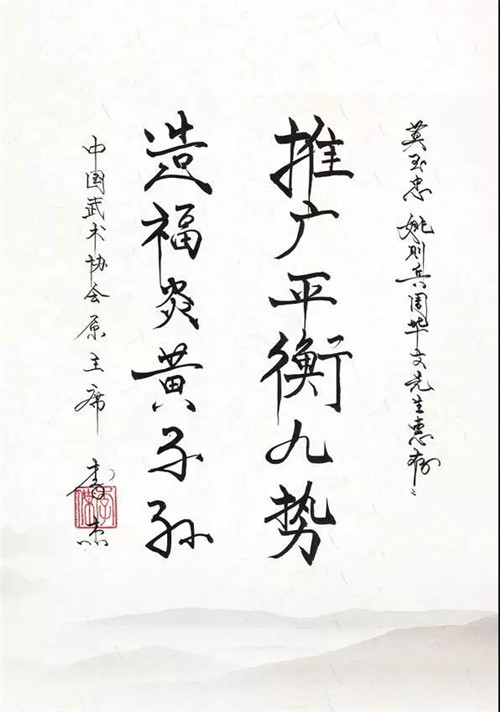 莫玉忠 姚则兵 周华文先生惠存
推广平衡九势
造福炎黄子孙
中国武术协会原主席 李杰